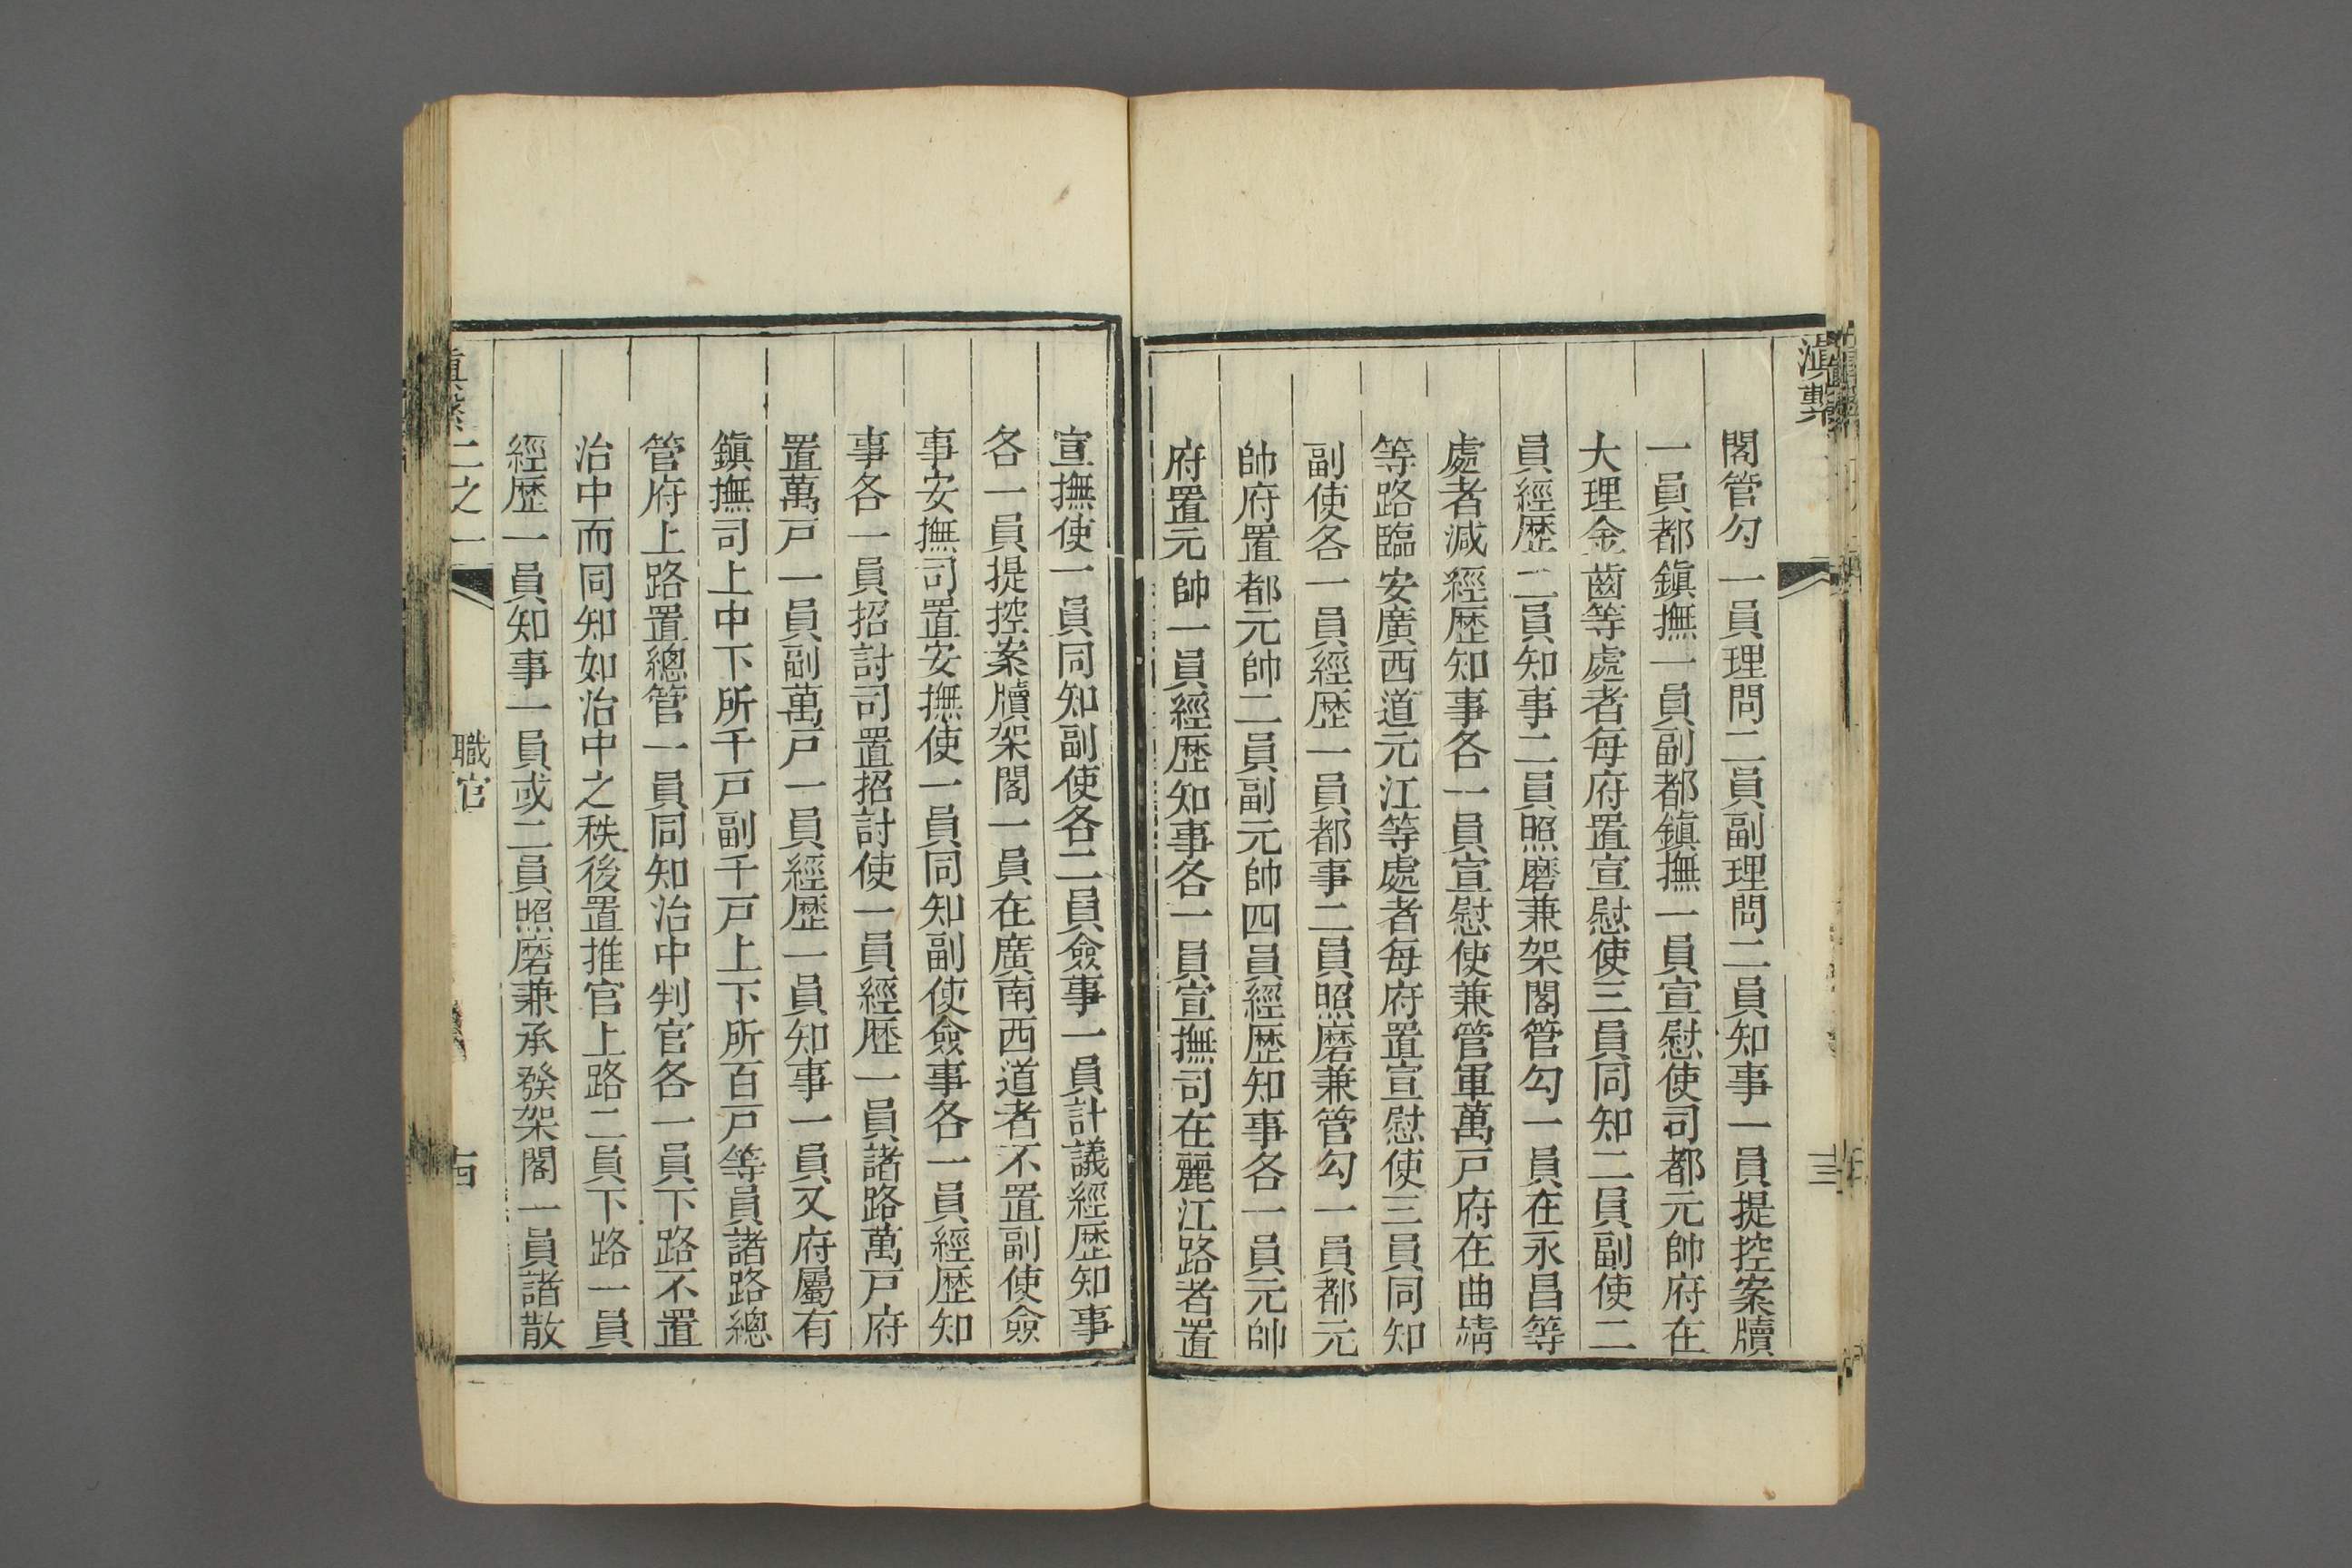 滇繫
三
閣管勾一員理問二員副理問二員知事一員提控案牘
一員都鎮撫一員副都鎮撫一員宣慰使司都元帥府在
大理金齒等處者每府置宣慰使三員同知二員副使二
員經歷二員知事二員照磨兼架閣管勾一員在永昌等
處者減經歷知事各一員宣慰使兼管軍萬戸府在曲靖
等路臨安廣西道元江等處者每府置宣慰使三員同知
副使各一員經歷一員都事二員照磨兼管勾一員都元
帥府置都元帥二員副元帥四員經歷知事各一員元帥
府置元帥一員經歷知事各一員宣撫司在麗江路者置
宣撫使一員同知副使各二員僉事一員計議經歷知事
各一員提控案牘架閣一員在廣南西道者不置副使僉
事安撫司置安撫使一員同知副使僉事各一員經歷知
事各一員招討司置招討使一員經歷一員諸路萬戸府
置萬戸一員副萬戸一員經歷一員知事一員又府屬有
鎮撫司上中下所千戸副千戸上下所百戸等員諸路總
管府上路置總管一員同知治中判官各一員下路不置
治中而同知如治中之秩後置推官上路二員下路一員
經歷一員知事一員或二員照磨兼承發架閣一員諸散
二之一
職官